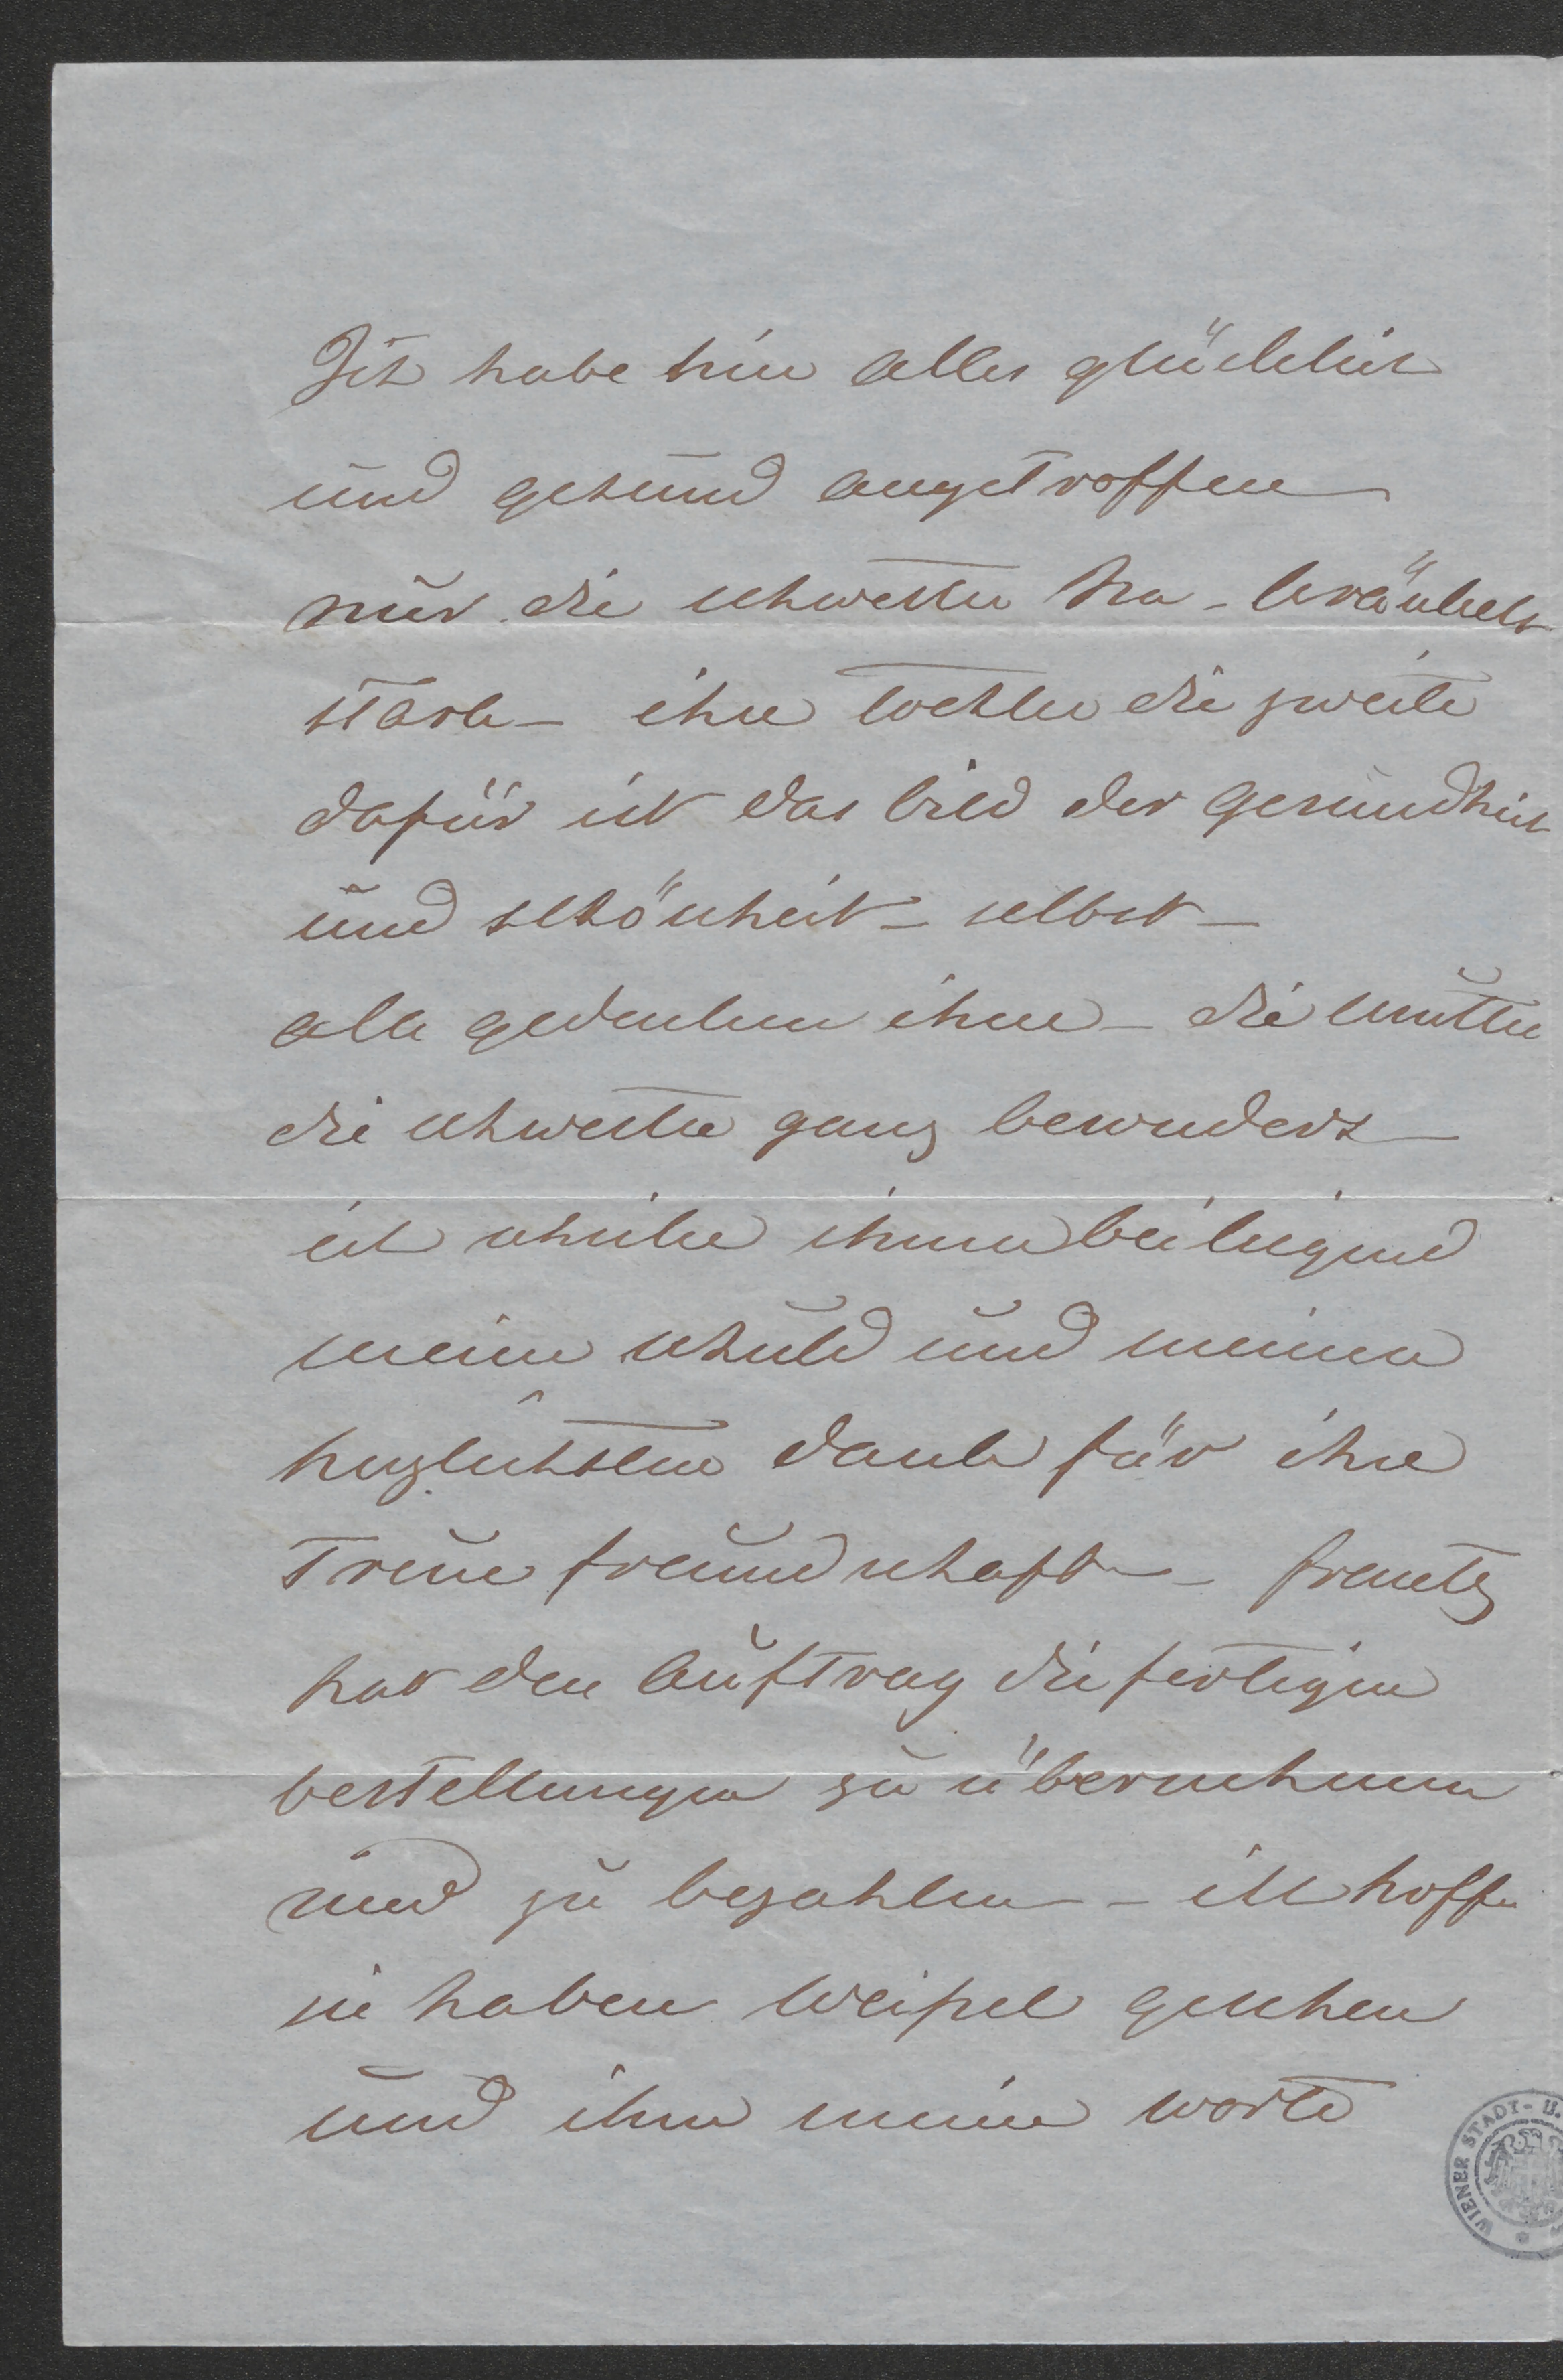 Ich habe hier alles glücklich
und gesund angetroffen
nur die schwester kränkelt
stark – ihre tochter die zweite
dafür ist das bild der gesundheit
und schönheit – selbst –
alle gedenken ihrer – die mutter
die schwester ganz besonders –
ich schicke ihnen beiliegend
meine schuld und meinen
herzlichsten dank für ihre
treue freundschaft – frantz
hat den auftrag die fertigen
bestellungen zu übernehmen
und zu bezahlen – ich hoffe
sie haben gesehen
und ihm meine worte
WIENER STADT- U.